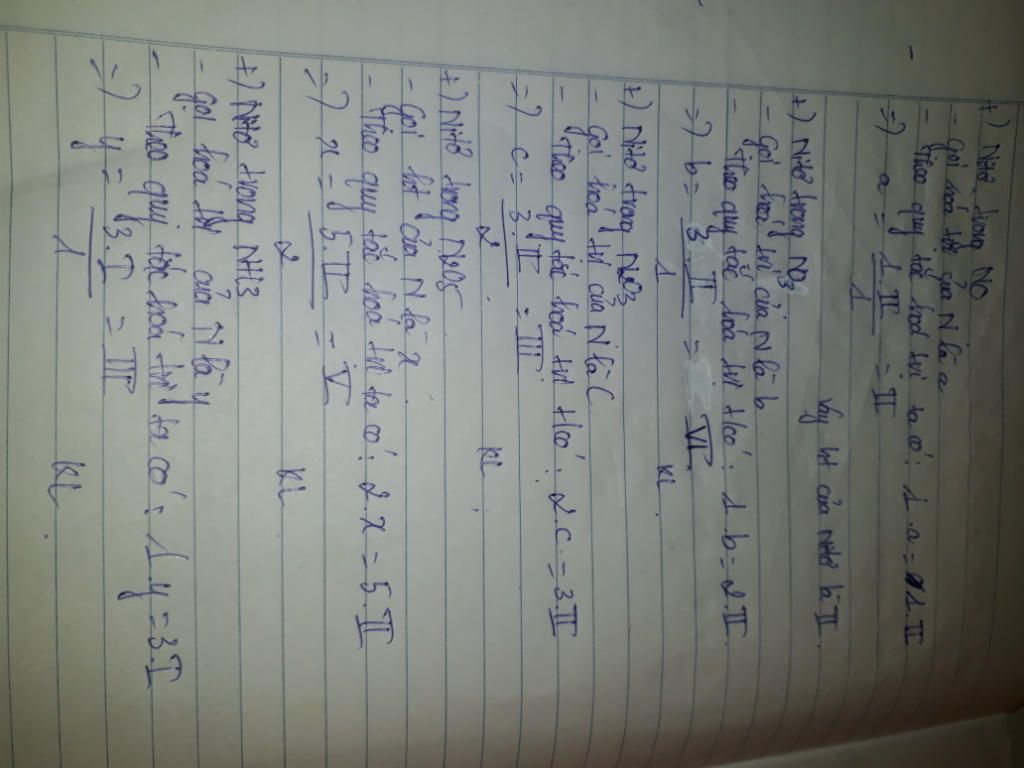 +) Nitơ trong NO
- gọi hoá trị của N là a
- Theo quy tắc hoá trị ta có: 1.a = 1.II
=) a = 1.II = II
1
Vậy ht của Nitơ là II.
+) Nitơ trong NO3
- Gọi hoá trị của N là b
- Theo quy tắc hoá trị ta có: 1.b = 2.II
=) b = 3.II = VI
1
KL.
+) Nitơ trong N2O3
- gọi hoá trị của N là C
- Theo quy tắc hoá trị ta có: 2.c = 3II
=) c = 3.II = III
2
KL.
+) Nitơ trong N2O5
- Gọi ht của N là x
- Theo quy tắc hoá trị ta có: 2.x = 5.II
=) x = 5.II = V
2
KL
+) Nitơ trong NH3
- gọi hoá trị của N là y
- Theo quy tắc hoá trị ta có: 1y = 3I
=) y = 3.I = III
1
KL.